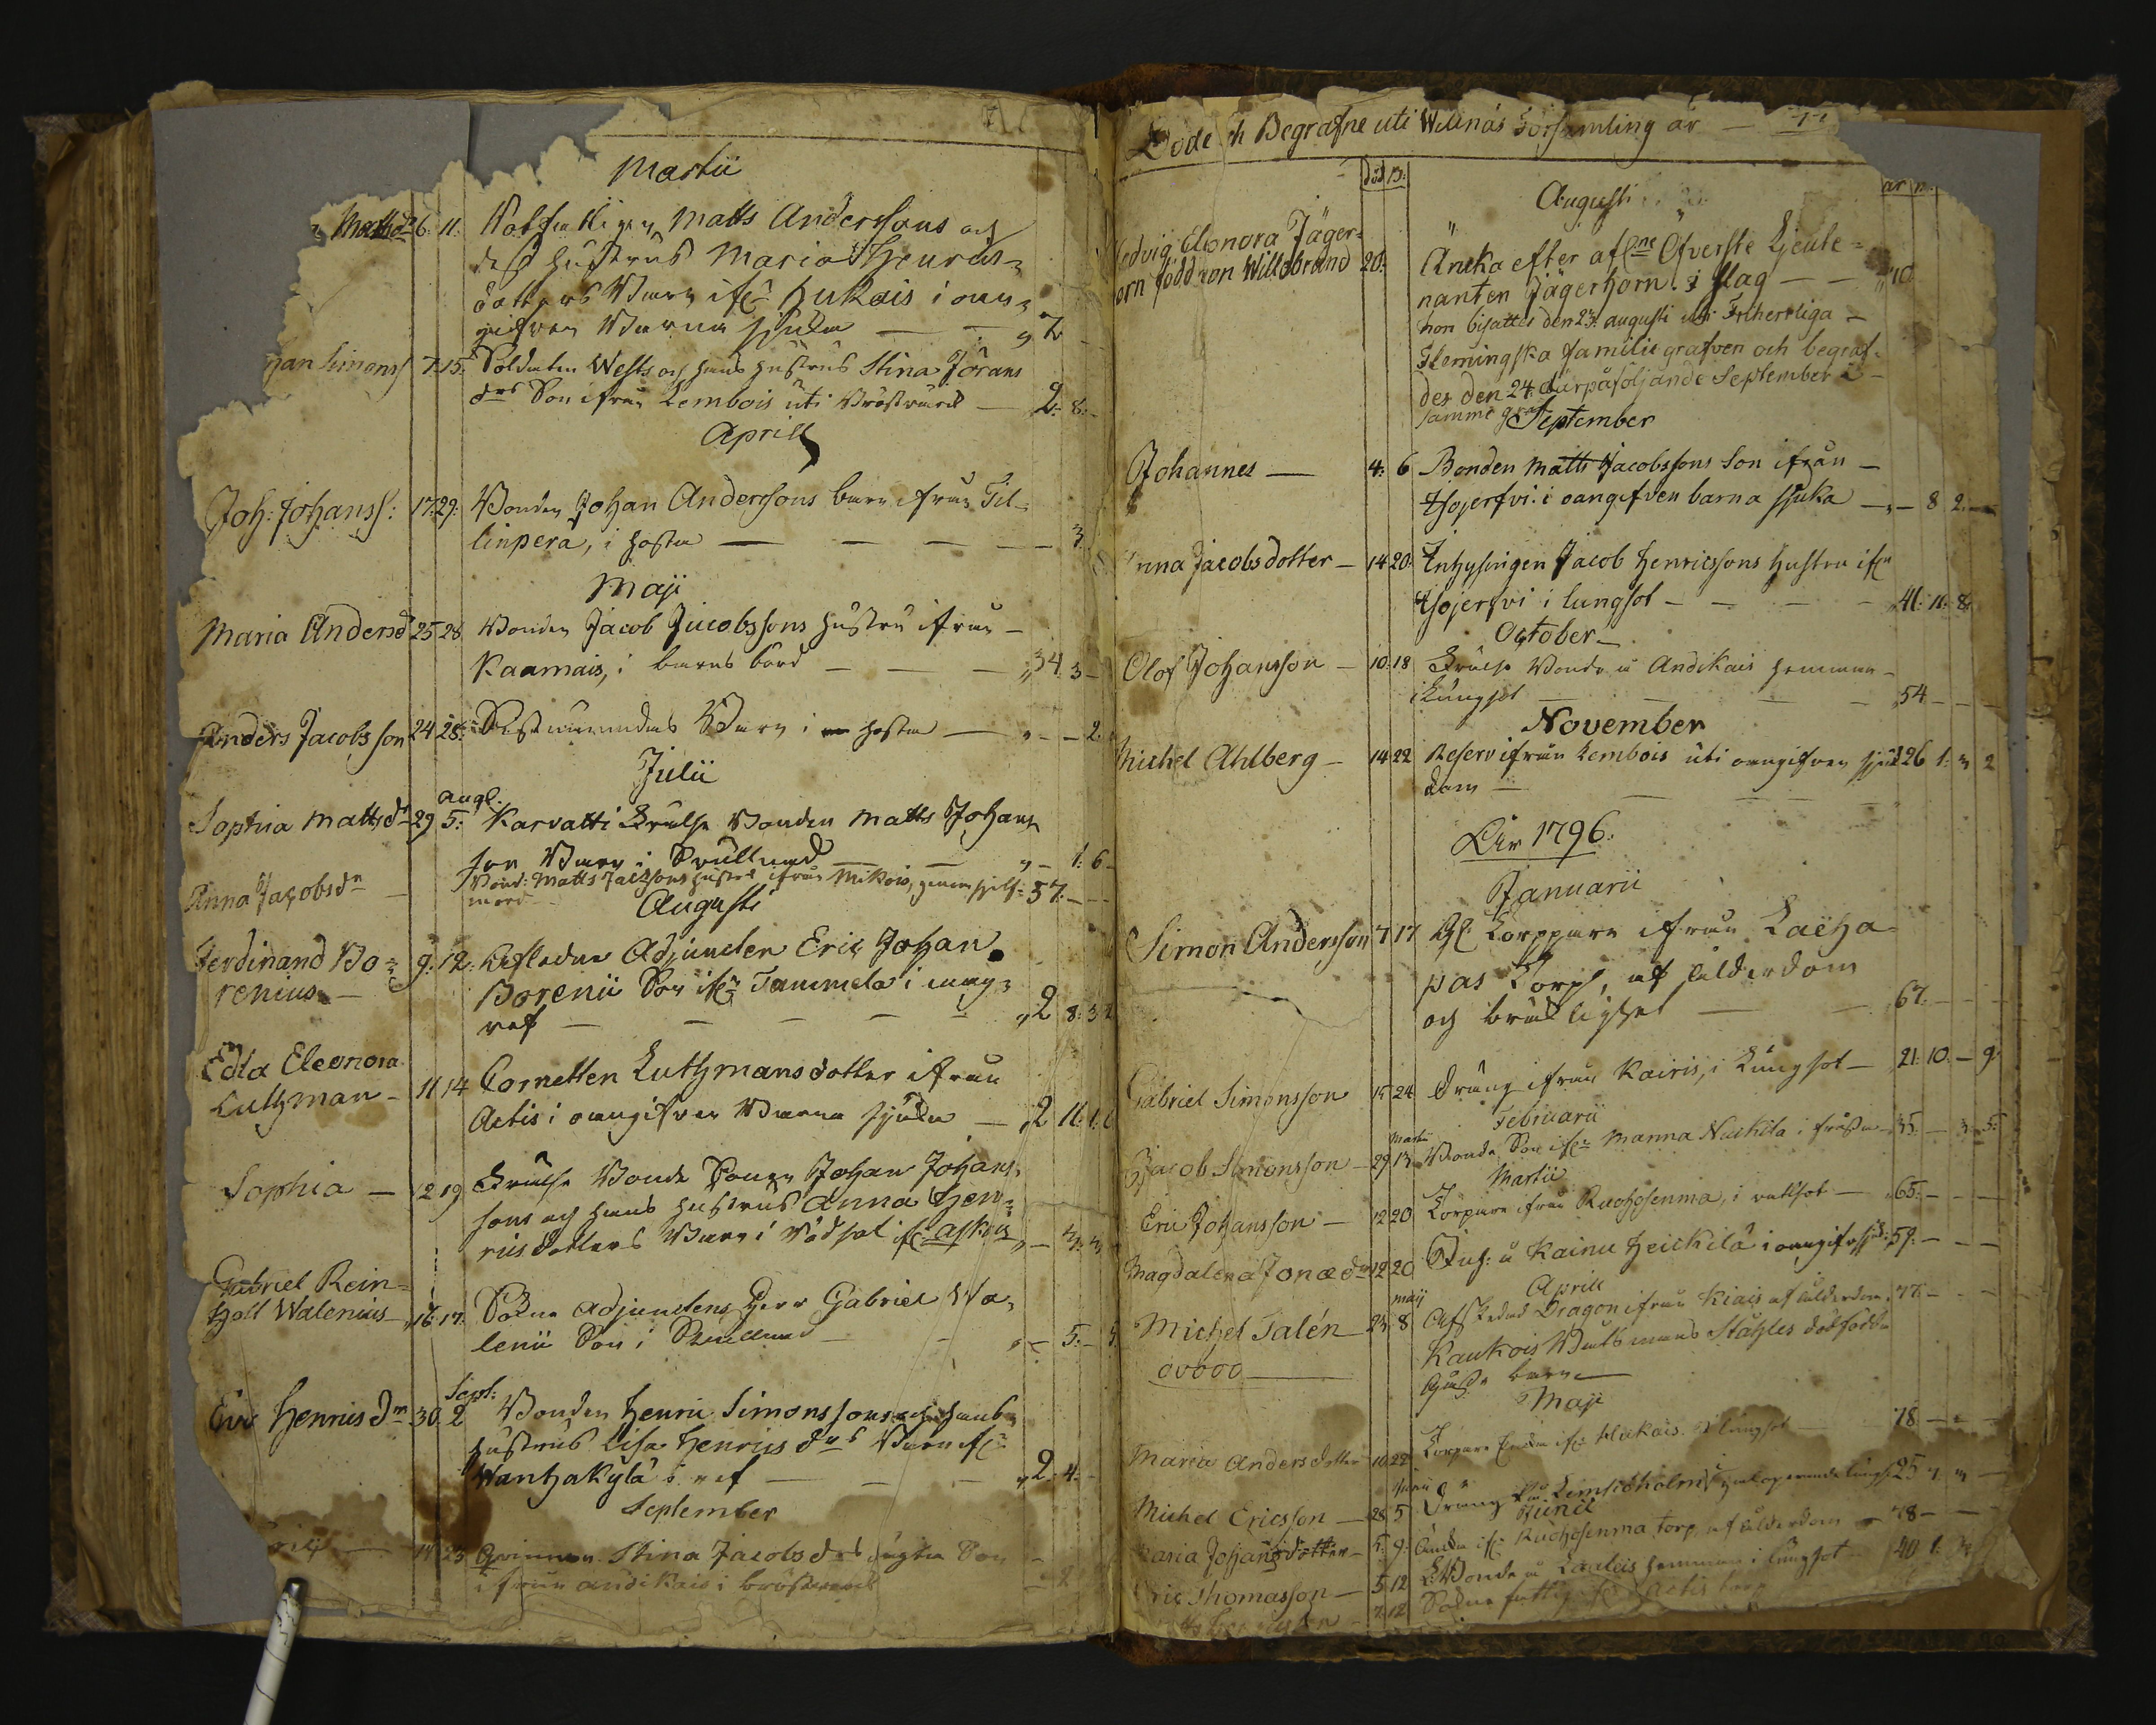 Martii
Mattsdr 6. 11. Rotfattigen Matts Anderssons och
dess hustrus Maria Henrics
dotters Barn ifrn Hukais i oan
gifven Barna sjuka — 7
han Simonss 7. 15. Soldaten Wests och hans hustrus Stina Jörans
drs Son ifrån Lembois uti Bröstwärck — 2. 8.
Aprill
Joh: Johanss: 17. 29. Bonden Johan Anderssons barn ifrån Til=
linpera, i hosta — 3.
Maji
Maria Andersdr 25 28 Bonden Jacob Jacobssons hustru ifrån —
Kaamais, i barns börd — 34. 3 —
Anders Jacobsson 24 28. barn i hosta — 2.
Julii
Augl.
Sophia Mattsdr 29 5. Karvatti Frälse Bonden Matts Johans
son Barn i — 1. 6 —
Anna Jacobsdr — Bond: Matts hustru ifrån Mikois, genom sjelf= 57. —
mord —
Augusti
Ferdinand Bo= 9. 12. Afledne Adjuncten Eric Johan
renius — Borenii Son ifrn Tammela i mag=
ref — 2 8. 3
Edla Eleonora
Luthman — 11 14 Cornetten Luthmans dotter ifrån
Actis i oangifven Barna sjuka — 2 11. 1.
Sophia — 12 19 Frälse Bonde Sonen Johan Johans
sons och hans hustrus Anna Hen=
rics dotters Barn i Rödsot ifrn Askais
Gabriel Rein=
hold Walenius — 16. 17. Sokne Adjunctens Herr Gabriel Wa=
lenii Son i — 5. —
Sept:
Eva Henricsdr 30. 2 Bonden Henric Simonssons och hans
hustrus Lisa Henrics drs Barn ifrn
Wanhakylä i ref — 2. 4. —
September
14 23 Qvinnan Stina Jacobsdrs oägta Son
ifrån Andikais i bröstwärck — 2
Döde och Begrafne uti Willnäs Församling år —
död B: år m.
Augusti
Hedvig Elonora Jäger=
horn född von Willebrand 20. Äncka efter aflne Öfverste Lieute=
nanten Jägerhorn i slag — 70
hon bisattes den 23. augusti uti Friherrliga —
Flemingska familie grafven och begraf=
des den 24. därpåföljande September i —
samme graf
September
Johannes — 4. 6 Bonden Matts Jacobssons Son ifrån —
Hojerfvi: i oangifven barna sjuka — 8 2. —
Anna Jacobsdotter — 14 20. Inhysingen Jacob Henricssons hustru ifrn
Hojerfvi i lungsot — 41. 11. 8.
October —
Olof Johansson — 10. 18 Frälse Bonde å Andikais hemman —
i Lungsot — 54 —
November
Michel Ahlberg — 14 22 Reserv ifrån Lembois uti oangifven sjuk 26 1. 3 2
dom —
År 1796.
Januarii
Simon Andersson 7 17 Gl. Torppare ifrån Laeha
pas Torp, af ålderdom
och bräcklighet — 67. —
Gabriel Simonsson 15 24 Dräng ifrån Kairis, i Lungsot — 21. 10. — 9.
Februarii
Martii
Jacob Simonsson — 29 13 Bonde Son ifrn Manna Nuckila i frossa — 35 — 3 5.
Martii
Eric Johansson — 12 20 Torpare ifrån Ruohosenma, i — 65. —
Magdalena Jonae dr 12 20 Inh: å Kainu Heickilä i oangifv: sjuk: 59. —
Aprill
maij
Michel Talén — 23. 8 Afskedad Dragon ifrån Kiais af ålderdom. 77. —
ovboo — Kankois Stahles dödfödda
barn —
Maji
Maria Andersdotter 10 22 Torpare Encka ifrn Hukais i lungsot — 78 —
Junii
Michel Ericsson — 28 5 Dräng ifrån 25
Junii
Maria Johansdotter — 5. 9. Äncka ifrn Ruohosenma torp, af ålderdom — 78 —
Eric Thomasson — 5 12 Bonde å hemman i lungsot — 40 1.
7. 12 Sokne fattig Actis torp